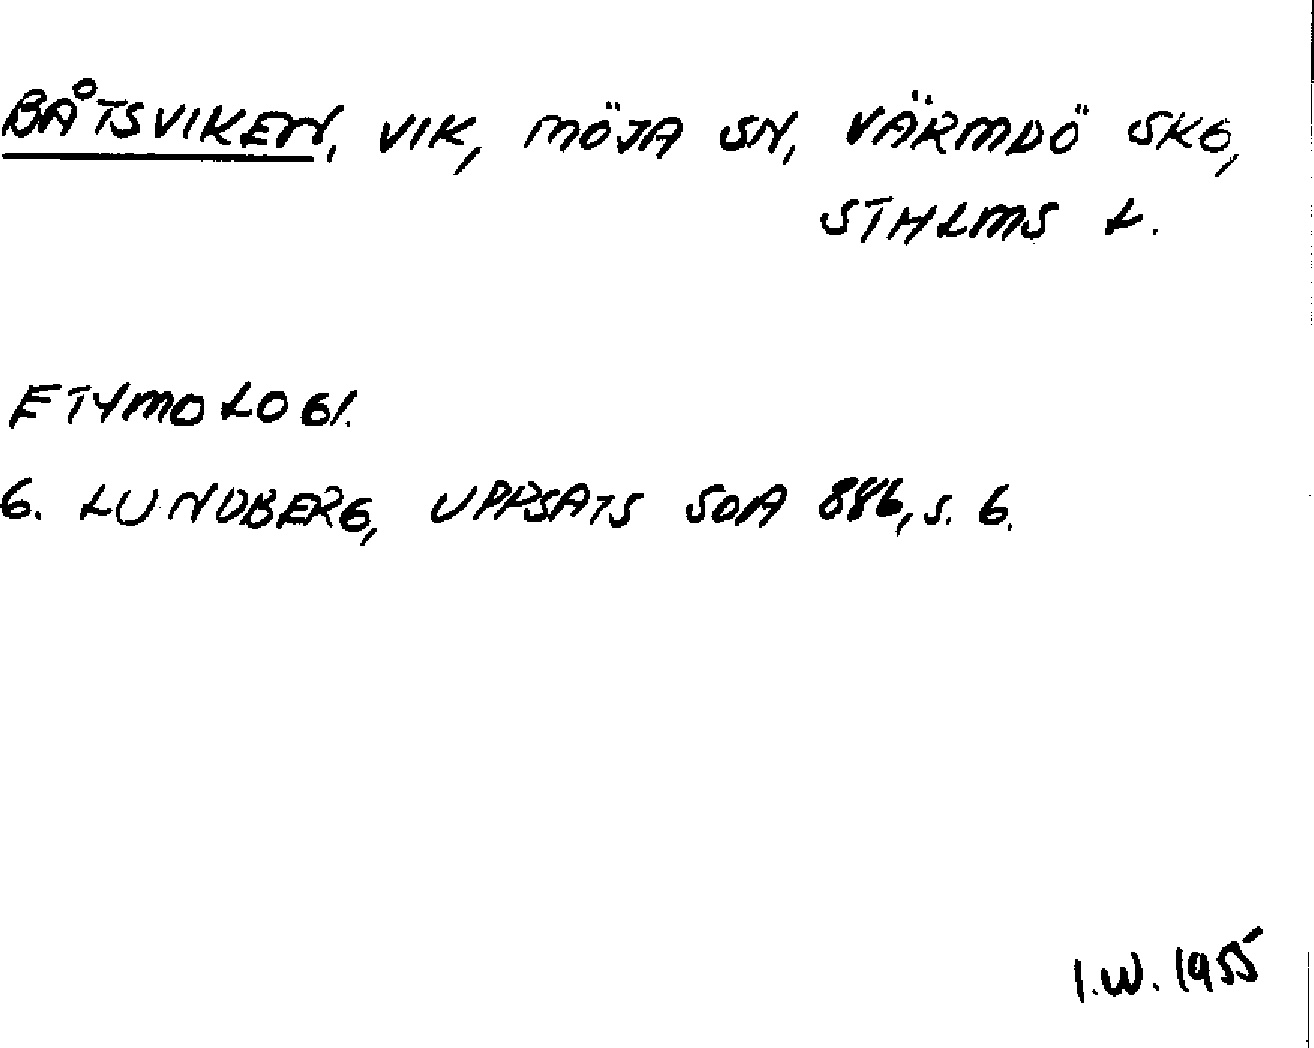 BÅTSVIKEN, VIK, MÖJA SN, VÄRMDÖ SKG,
STHLMS L.
ETYMOLOGI.
G. LUNDBERG, UPPSATS SOA 886, S. 6.
I.W. 1955